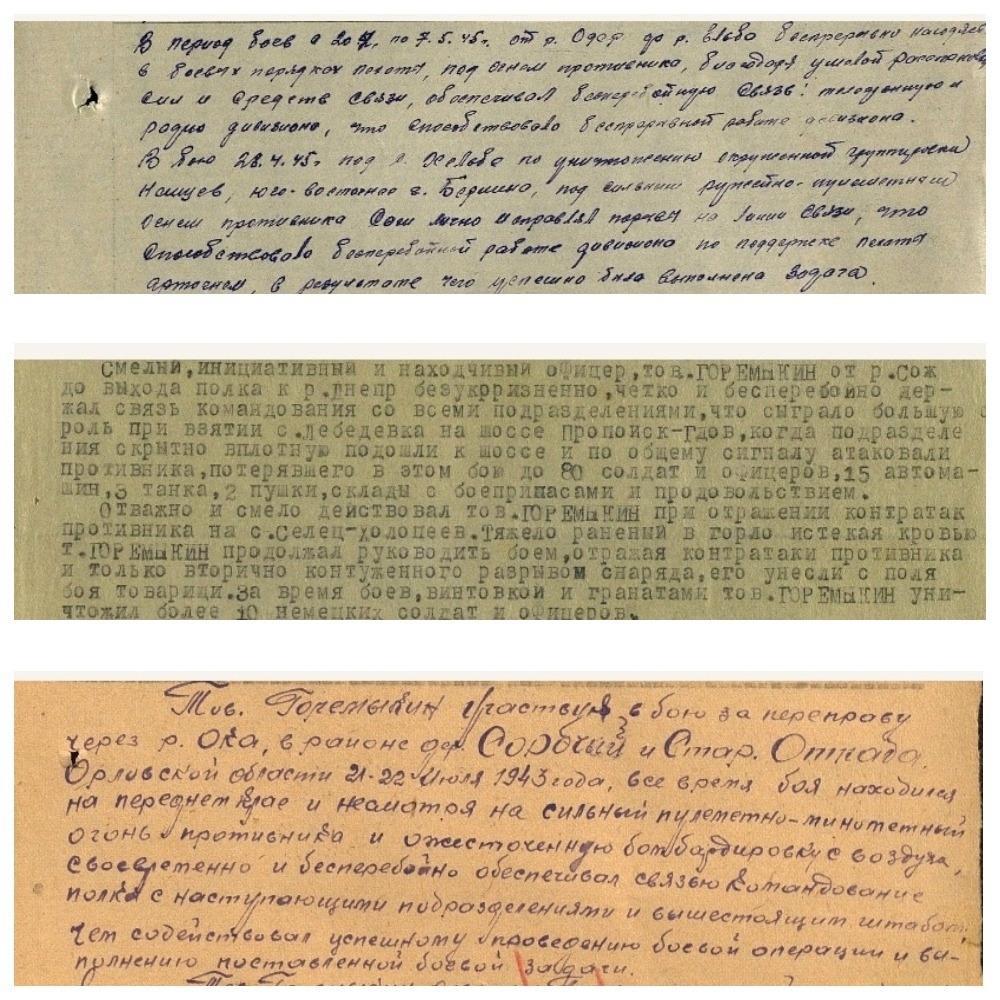 В период боев с 20.4. по 7.5.45г. от р. Одер до р. Эльба беспрерывно находясь
в боевых порядках пехоты, под огнем противника, благодаря умелой расстановке
сил и средств связи, обеспечивал бесперебойную связь: телефонную и
радио дивизиона, что способствовало беспрерывной работе дивизиона.
В бою 28.4.45г. под по уничтожению окруженной группировки
Немцев, юго-восточнее г. Берлина, под сильным ружейно-пулеметным
огнем противника сам лично исправлял порыв на линии связи, что
способствовало бесперебойной работе дивизиона по поддержке пехоты
артогнем, в результате чего успешно была выполнена задача.
Смелый,инициативный и находчивый офицер,тов.ГОРЕМЫКИН от р.Сож
до выхода полка к р.Днепр безукоризненно,четко и бесперебойно дер-
жал связь командования со всеми подразделениями,что сыграло большую
роль при взятии с.Лебедевка на шоссе Пропойск-Гдов,когда подразделе
ния скрытно вплотную подошли к шоссе и по общему сигналу атаковали
противника,потерявшего в этом бою до 80 солдат и офицеров,15 автома-
шин,3 танка,2 пушки,склады с боеприпасами и продовольствием.
Отважно и смело действовал тов.ГОРЕМЫКИН при отражении контратак
противника на с.Селец-Холопеев.Тяжело раненый в горло истекая кровью
т.ГОРЕМЫКИН продолжал руководить боем,отражая контратаки противника
и только вторично контуженного разрывом снаряда,его унесли с поля
боя товарищи.За время боев,винтовкой и гранатами тов.ГОРЕМЫКИН уни-
чтожил более 10 немецких солдат и офицеров.
Тов. Горемыкин участвуя в бою за переправу
через р. Ока, в районе дер. и Стар. Отрада
Орловской области 21-22 июля 1943 года, все время боя находился
на переднем крае и несмотря на сильный пулеметно-минометный
огонь противника и ожесточенную бомбардировку с воздуха,
своевременно и бесперебойно обеспечивал связью командование
полка с наступающими подразделениями и вышестоящим штабом,
чем содействовал успешному проведению боевой операции и вы-
полнению поставленной боевой задачи.